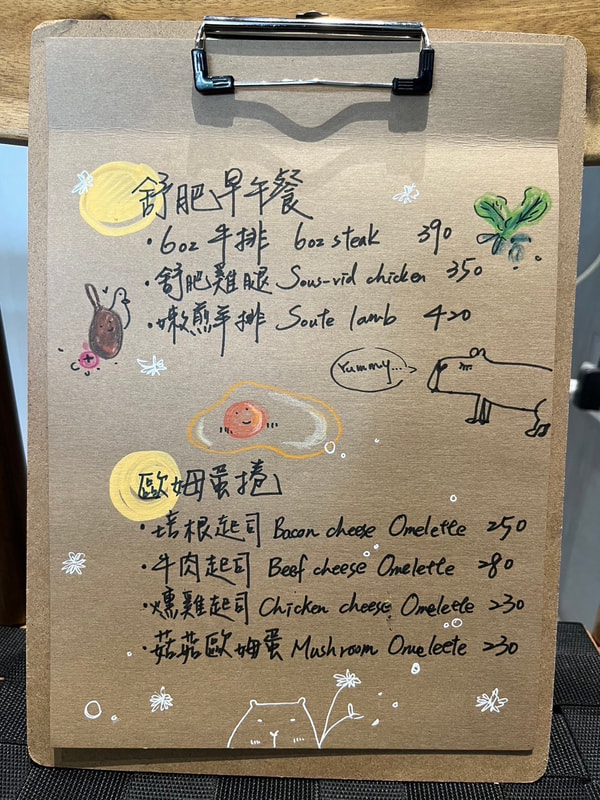 舒肥早午餐
·6oz 牛排 6oz steak 390
·舒肥雞腿 Sous-vid chicken 350
·嫩煎羊排 Soute lamb 420
Yummy...
歐姆蛋捲
·培根起司 Bacon cheese Omelette 250
·牛肉起司 Beef cheese Omelette 280
·燻雞起司 Chicken cheese Omelette 230
·菇菇歐姆蛋 Mushroom Omeleete 230